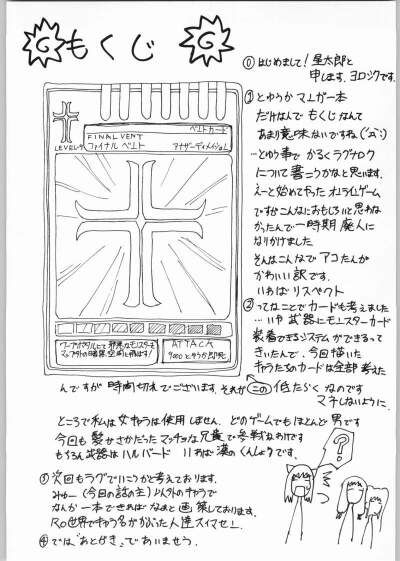 G もくじ G
⓪はじめまして!星太郎と
申します、ヨロシクです。
①とゆうかマンガ一本
だけなんで もくじなんて
あまり意味ないですね、(;´д`)
…とゆう事で かるくラグナロク
について書こうかなと思います。
えーと始めてやった オンラインゲーム
ですがこんなにおもしろいと思わな
かったんで一時期 廃人に
なりかけました
そんなこんなで アコたんが
かわいい訳です。
いわば リスペクト
②ってなことでカードも考えました
…いや 武器にモンスターカード
装着できるシステムができるって
きいたんで、今回描いた
キャラたちのカードは全部考えた
んですが時間切れでございます。それがこの低たらくなのです
マネしないように。
LEVEL 4
ベントカード
FINAL VENT
ファイナルベント
アナザーディメンション
ワープポータルにて邪悪なモンスターを
マップ外の暗黒空間に飛ばす!
ATTACK
9000 とゆうか即死
ところで私は女キャラは使用しません、どのゲームでもほとんど男です
今回も髪がさかだったマッチョな兄貴で参戦なわけです
もちろん武器は ハルバード いわば漢のくんしょうです。
?
③次回もラグでいこうかと考えております。
みゅー(今回の話の主)以外のキャラで
なんか一本できればなぁと画策しております。
RO世界でキャラ名がかぶった人達スイマセン
④では"あとがき"であいましょう。